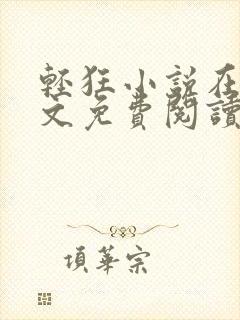 輕狂小說在
文免費閱讀
項華宗